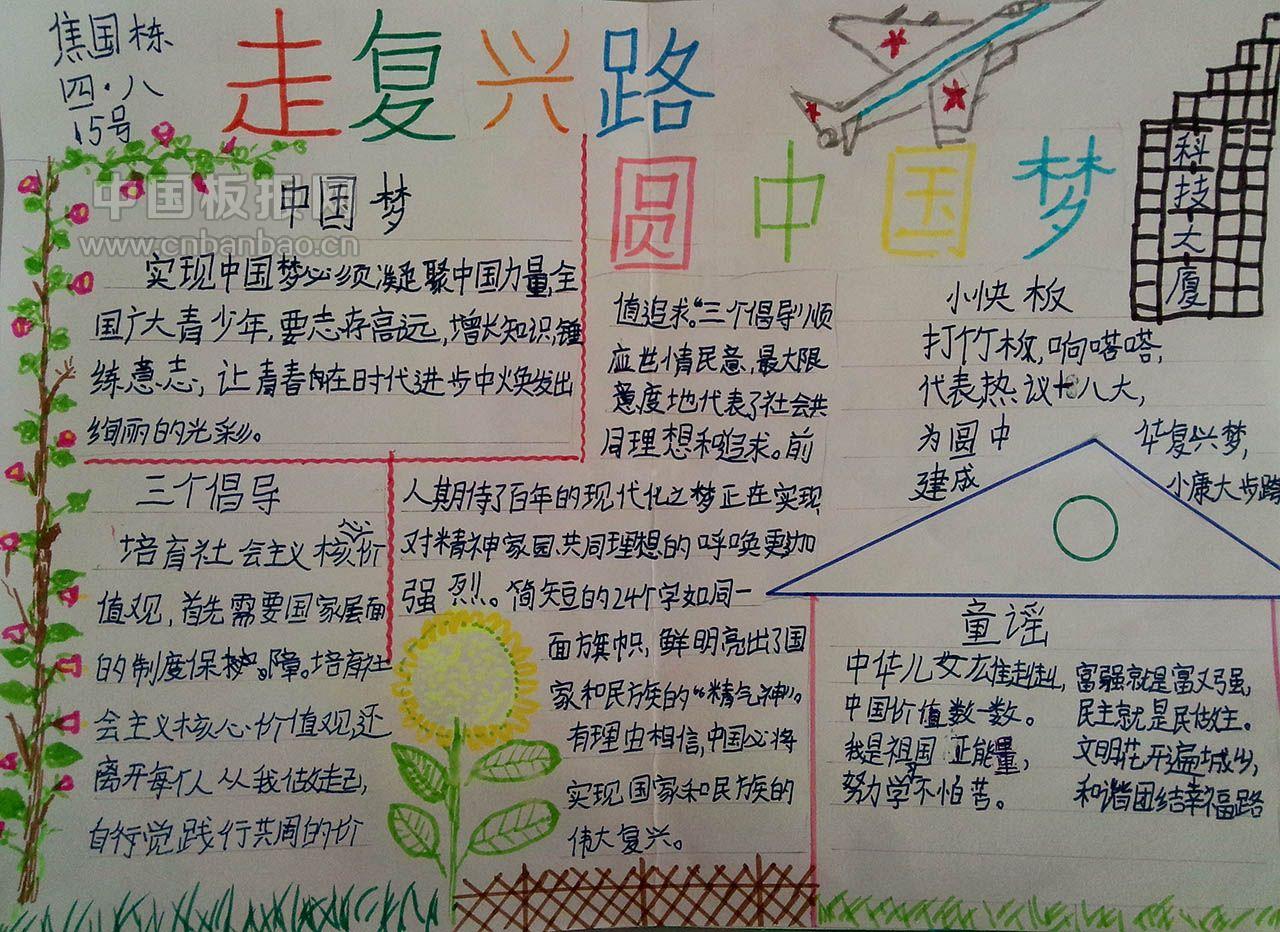 焦国栋
四·八
15号
走复兴路
圆中国梦
科技大厦
中国板报网
www.cnbanbao.cn
中国梦
实现中国梦必须凝聚中国力量,全
国广大青少年,要志存高远,增长知识,锤
练意志,让青春在时代进步中焕发出
绚丽的光彩。
三个倡导
培育社会主义核心价
值观,首先需要国家层面
的制度保障。培育社
会主义核心价值观,还
离开每个人从我做起,
自行觉践行共同的价
值追求。“三个倡导”顺
应世情民意,最大限
意度地代表了社会共
同理想和追求。前
人期待了百年的现代化之梦正在实现
对精神家园、共同理想的呼唤更加
强烈。简短的24个字如同一
面旗帜,鲜明亮出了国
家和民族的“精气神”。
有理由相信,中国必将
实现国家和民族的
伟大复兴。
小快板
打竹板,响嗒嗒,
代表热议十八大,
为圆中华复兴梦,
建成小康大步跨
童谣
中华儿女雄赳赳,
中国价值数一数。
我是祖国正能量,
努力学不怕苦。
富强就是富又强,
民主就是民做主。
文明花开遍城乡,
和谐团结幸福路